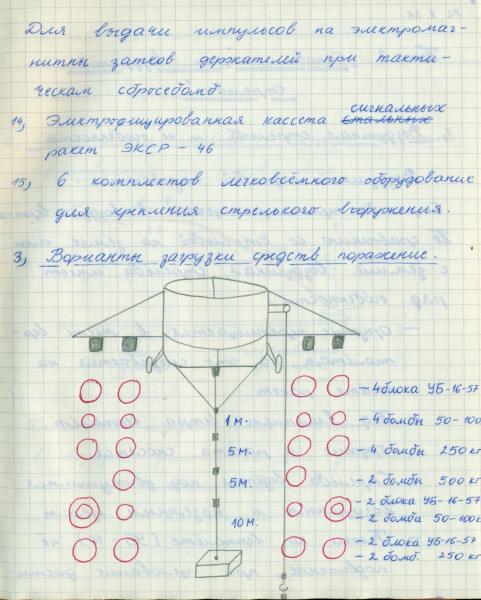 Для выдачи импульсов на электромаг-
нитны затков держателей при такти-
ческам сбросебомб.
14, Электрофицированная кассета сигнальных стальных
ракет ЭКСР – 46
15, 6 комплектов легковсёмного оборудование
для крепления стрелького вооружения.
3, Варианты загрузки средств поражение.
– 4 блока УБ-16-57
1 м. – 4 бомбы 50-100
5 м. – 4 бомбы 250 кг
5 м. – 2 бомбы 500 кг
– 2 блока УБ-16-57
10 м. – 2 бомба 50-100к
– 2 блока УБ-16-57
– 2 бомб. 250 кг